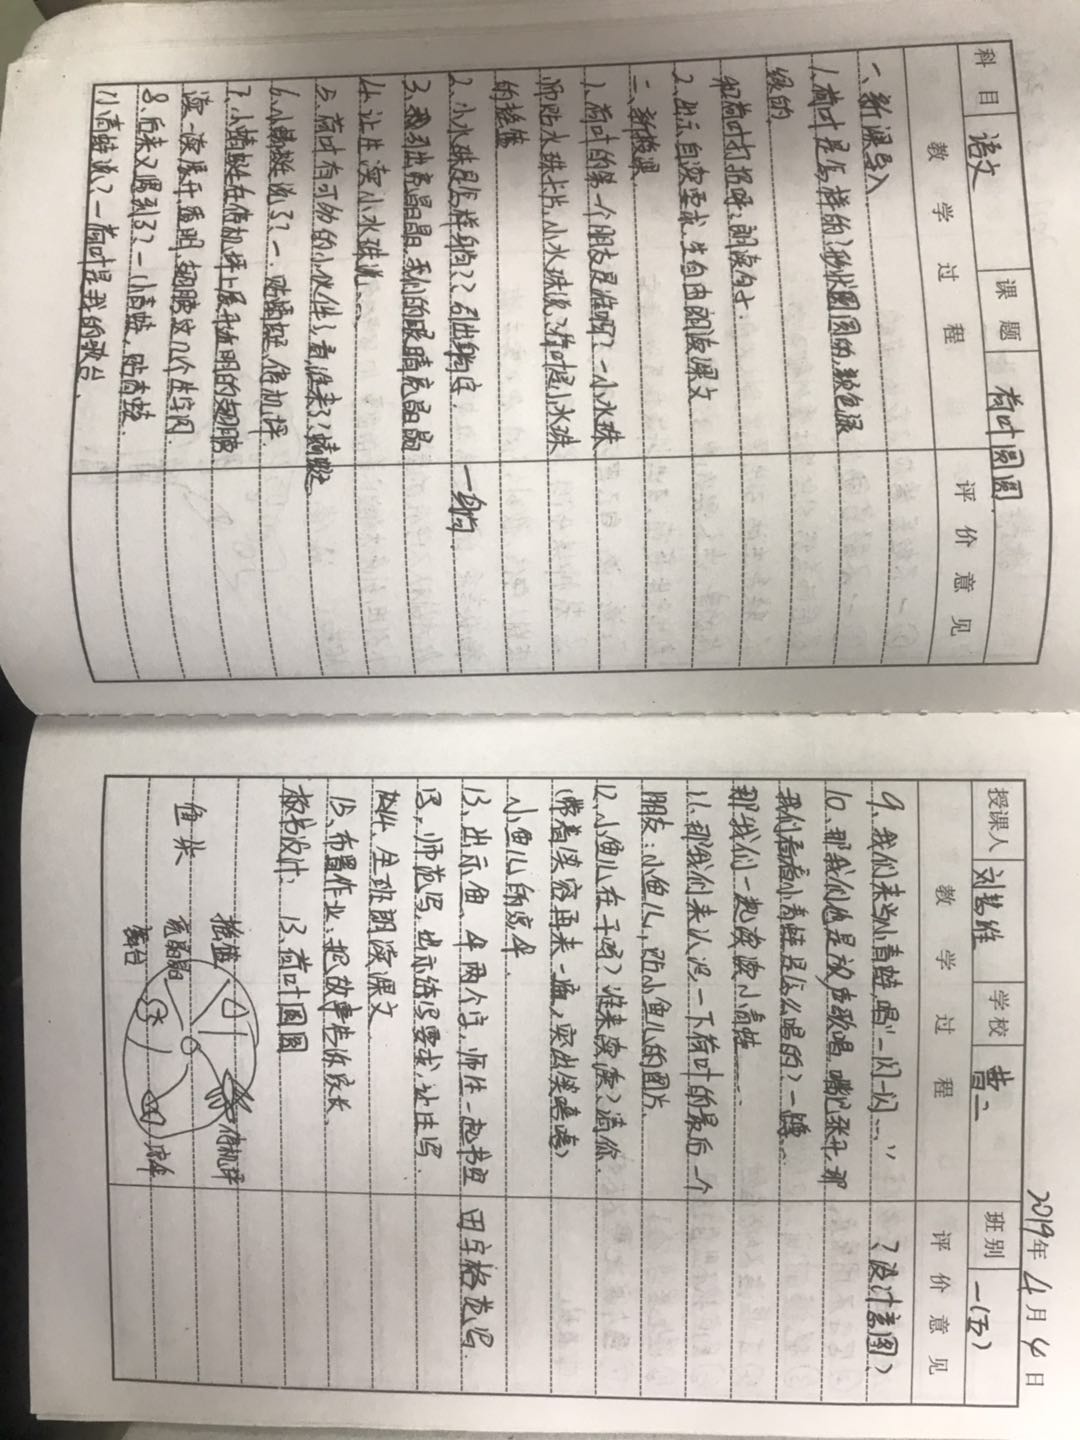 科目 语文 课题 荷叶圆圆
教学过程 评价意见
一、新课导入
1.荷叶是怎样的?(形状圆圆的,颜色绿
绿的
和荷叶打招呼:朗读句子.
2.出示自读要求,生自由朗读课文
二、新授课
1.荷叶的第一个朋友是谁啊?一小水珠
师贴水珠卡片,小水珠说?荷叶是小水珠
的摇篮
2.小水珠是怎样躺的??引出躺字. 一身向
3.引出亮晶晶,我们的眼睛亮晶晶
4.让生读小水珠说……
5.荷叶有可勿的小伙伴了,看,谁来了?蜻蜓
6.小蜻蜓说了?一.贴蜻蜓.停机坪.
7.小蜻蜓在停机坪上展开透明的翅膀
读一读展开,透明,翅膀这几个生字词.
8.后来又遇到了?一(小青蛙,贴青蛙.
小青蛙说?一荷叶是我的歌台.
2019年4月4日
授课人 学校 普二 班别 一(五)
教学过程 评价意见
9、我们来当小青蛙,唱"一闪一闪……" (设计意图)
10、那我们也是放声歌唱,嘴巴张开,那
我们看看小青蛙是怎么唱的?一蹲……
那我们一起读读小青蛙……
11.那我们来认识一下荷叶的最后一个
朋友:小鱼儿,贴小鱼儿的图片.
12、小鱼儿在干嘛?谁来读读?请你.
(带着笑容再来一遍,突出笑嘻嘻)
小鱼儿的凉伞.
13、出示鱼、伞两个字,师生一起书空 田字格范写.
13、师范写,出示练写要求,让生写.
14、全班朗读课文.
15、布置作业:把故事告诉家长.
板书设计: 13、荷叶圆圆
摇篮 停机坪
亮晶晶
鱼头
舞台 凉伞